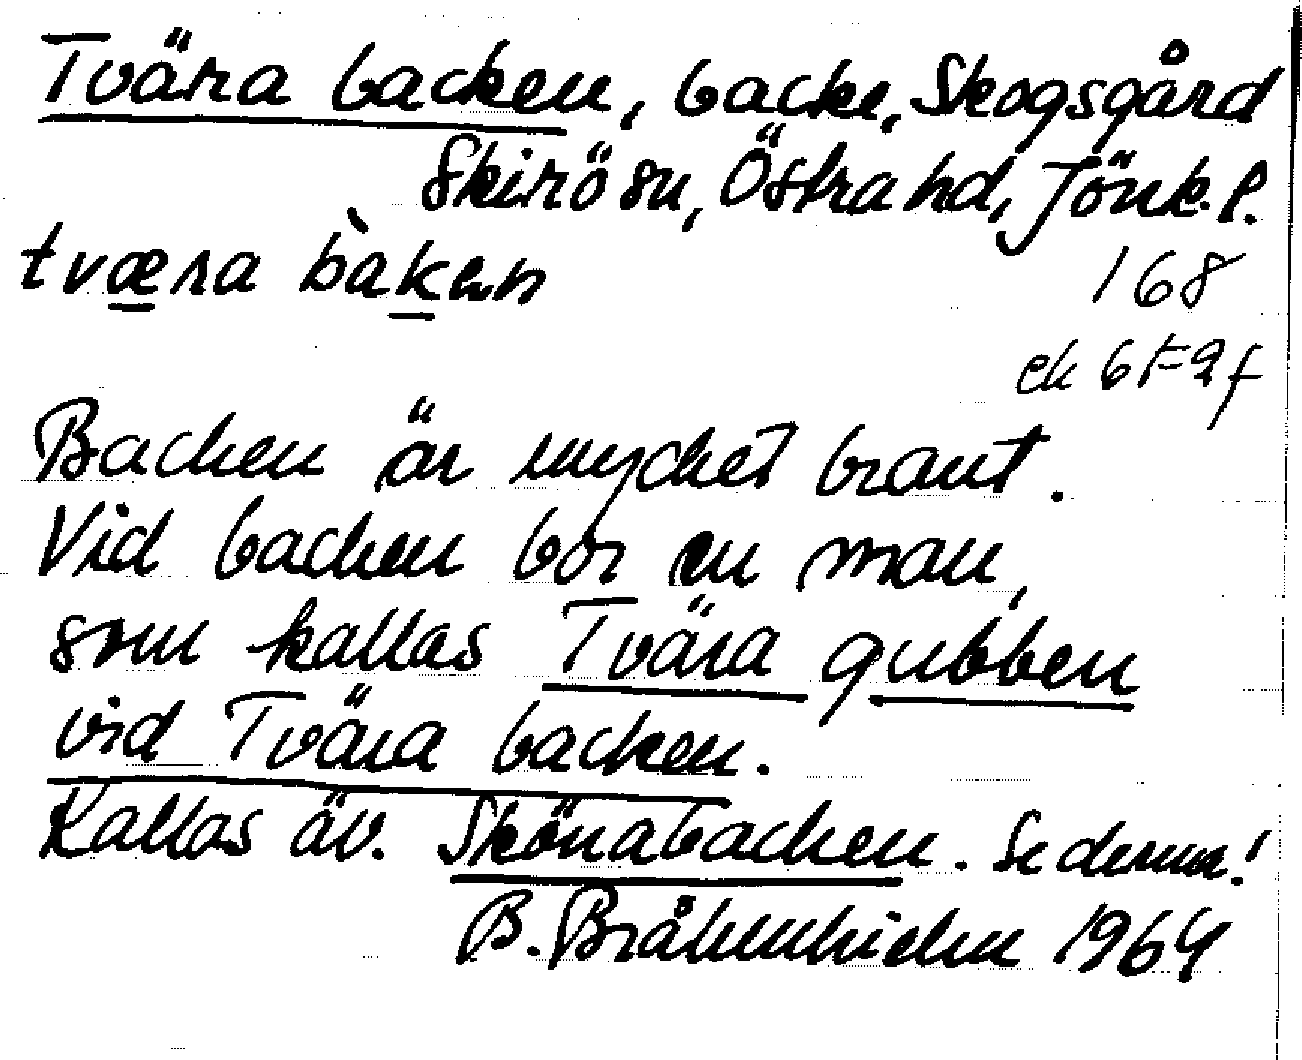 Tvära backen, backe, Skogsgård
Skirö sn, Östra hd, Jönk. l.
tværa bàken
168
ek 6 f=9 f
Backen är mycket brant.
Vid backen bor en man,
som kallas Tvära gubben
vid Tvära backen.
Kallas äv. Skönabacken. Se denna!
B. Bråhnhielm 1964